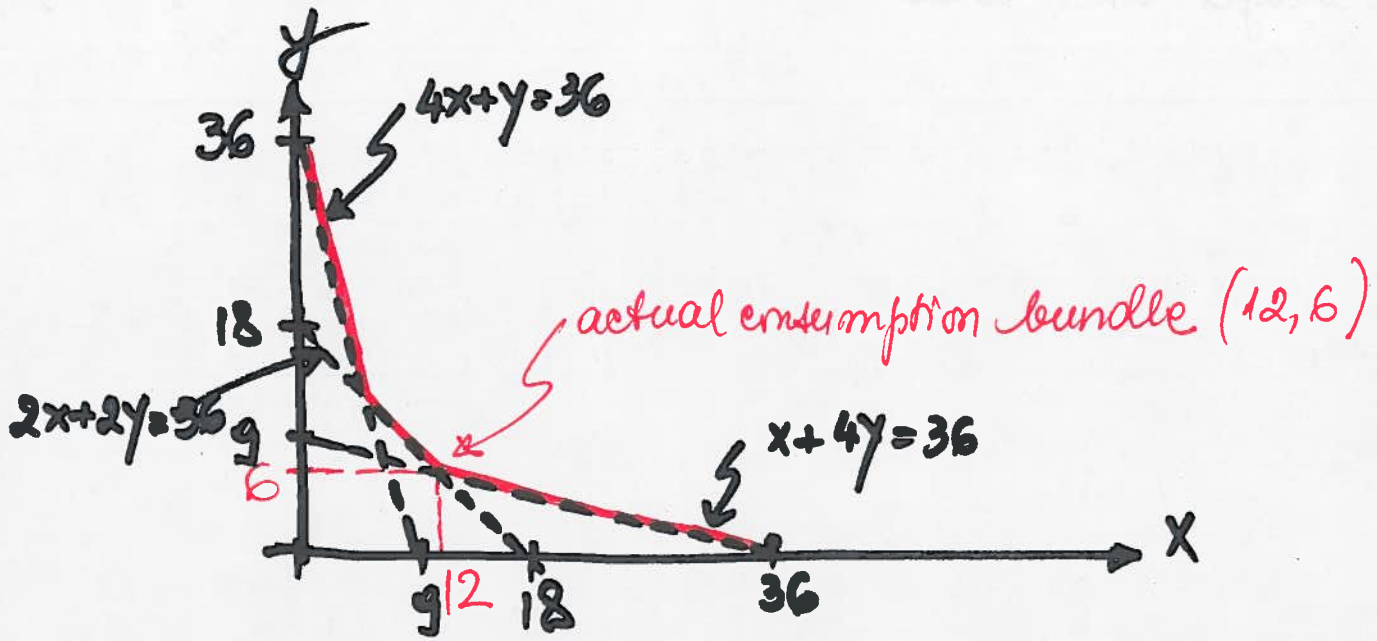 y
4x+y=36
36
18
actual consumption bundle (12,6)
2x+2y=36
9
x+4y=36
6
*
X
9
12
18
36